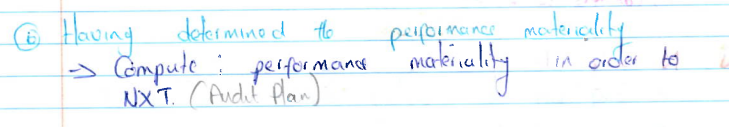 ⑥ Having determined the performance materiality
→ Compute : performance materiality in order to
NXT. (Audit Plan)